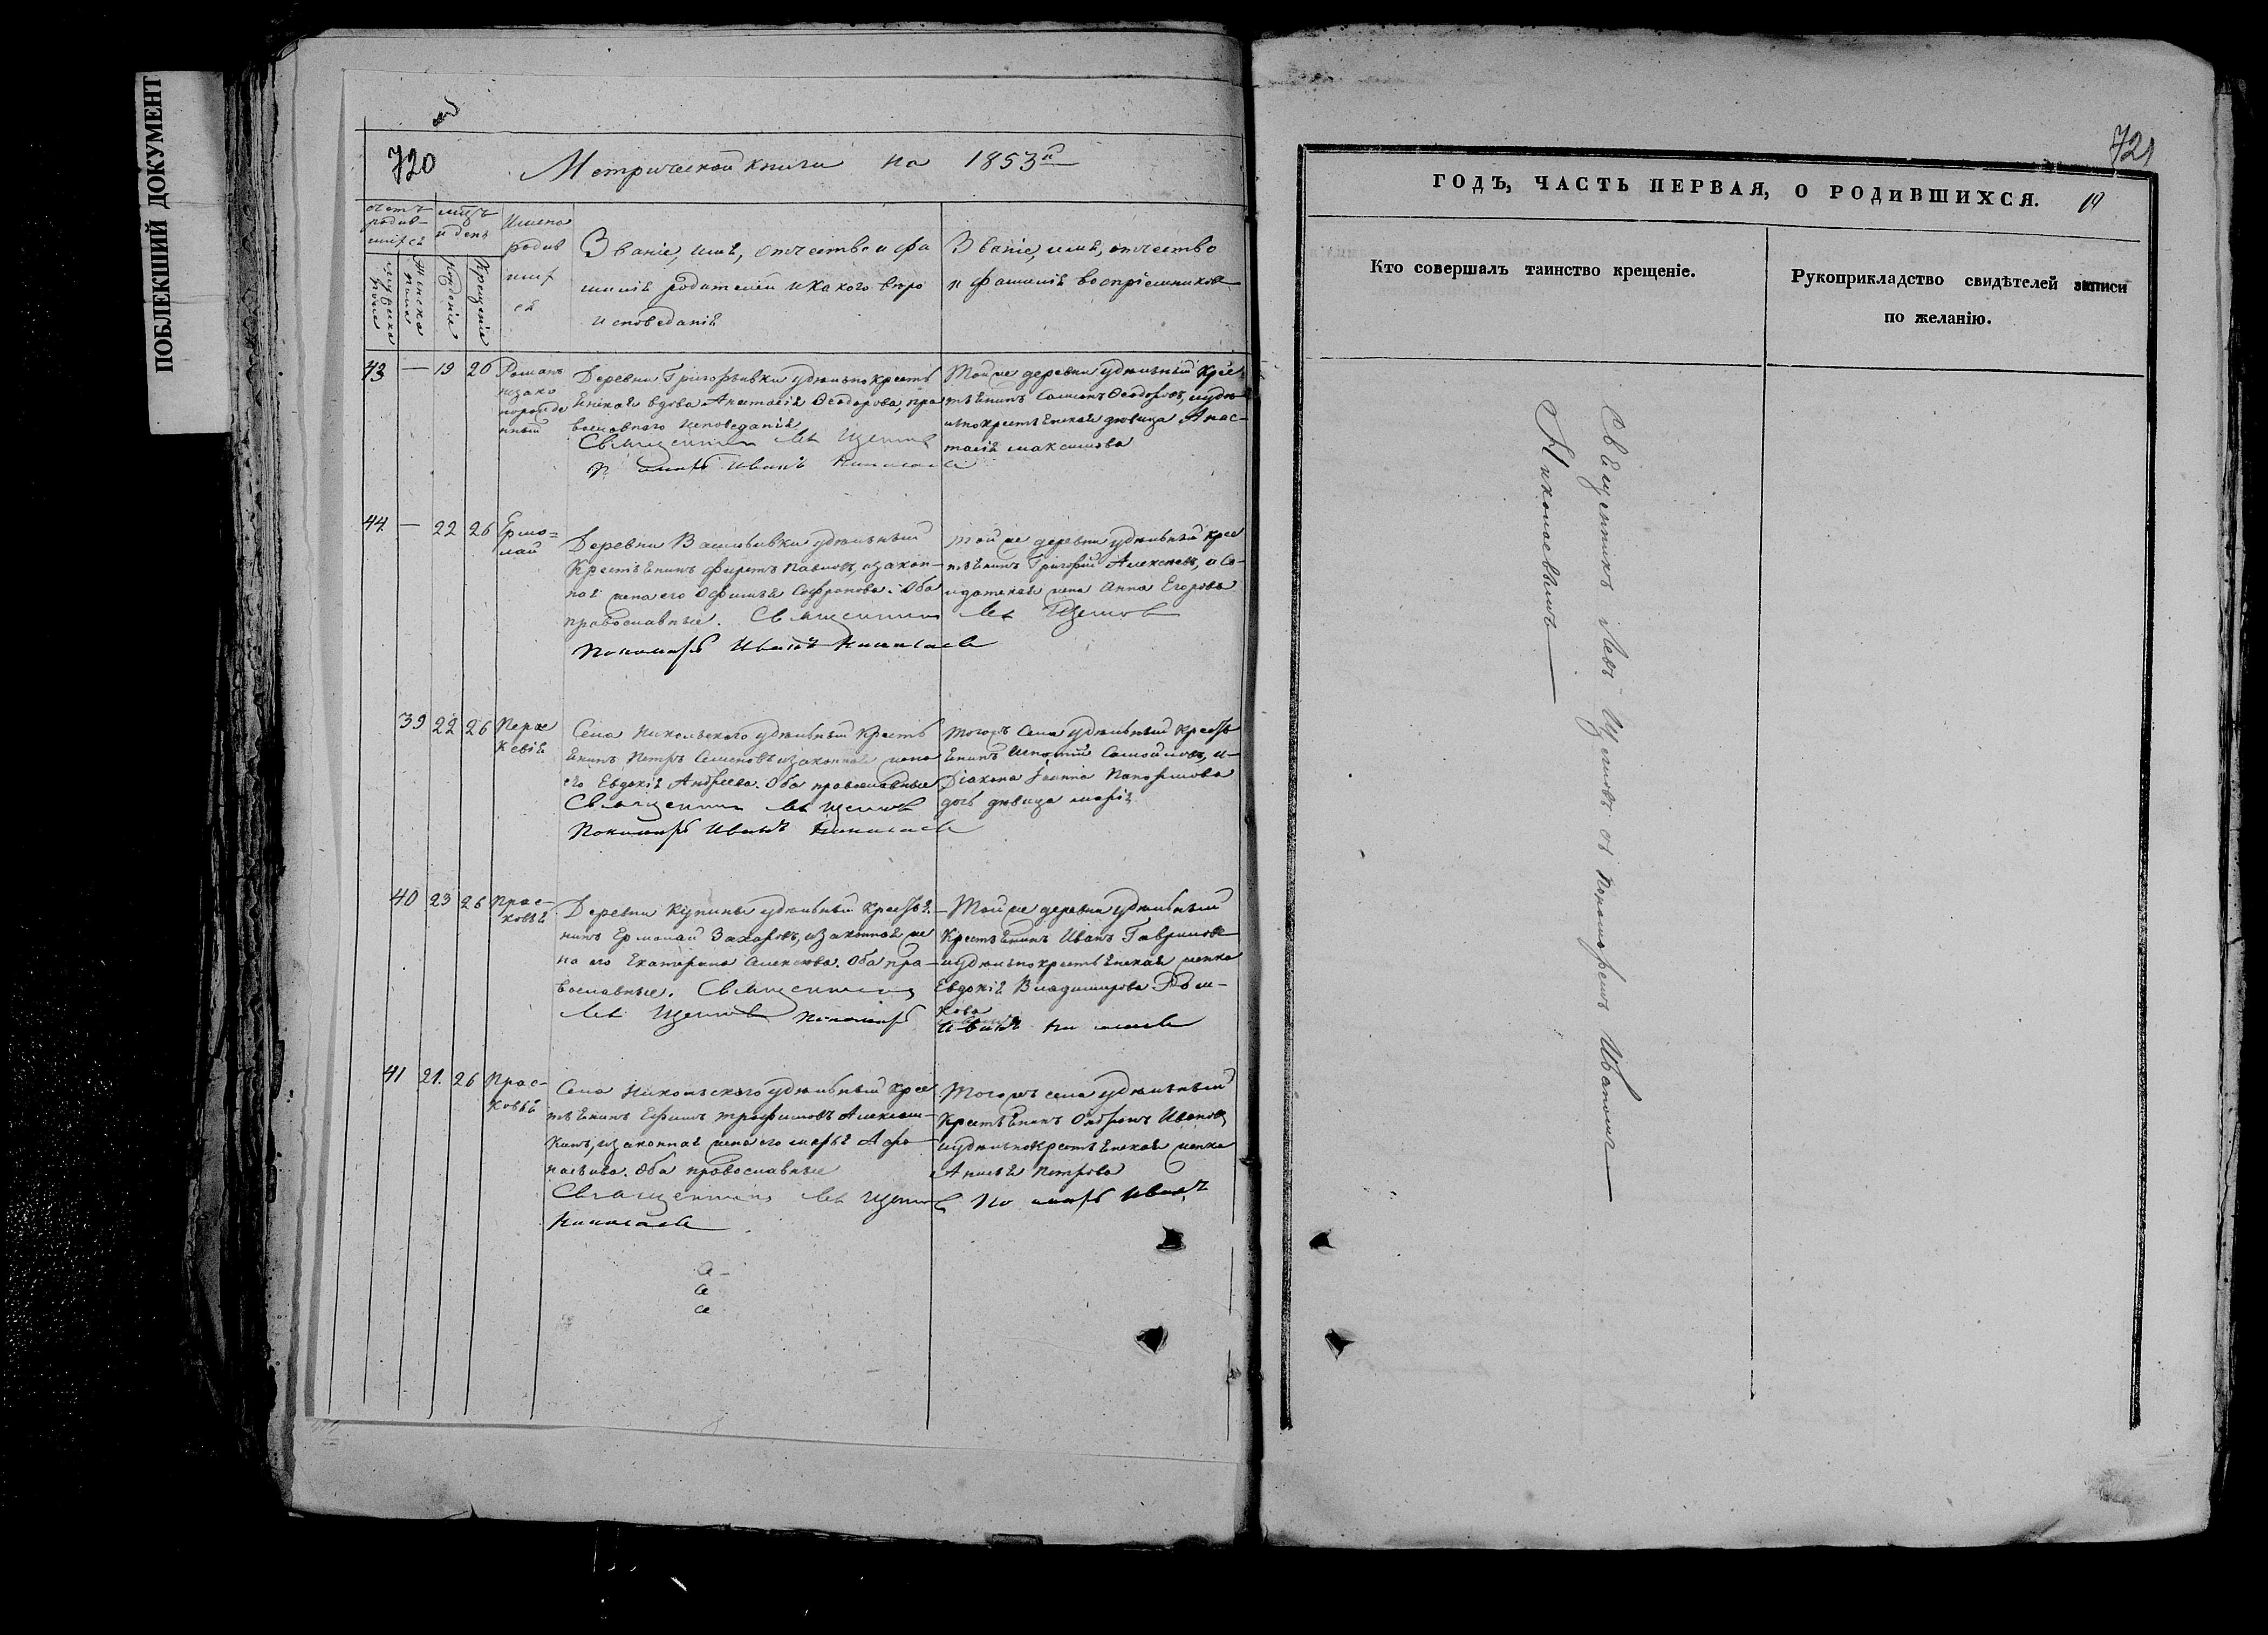 ПОБЛЕКШИЙ ДОКУМЕНТ
720
Метрической книги на 1853й
счетъ родив-шихся
мцъ и день
Имена родив шихся
Званіе, имя, отчество и фа
милія родителей и какого вѣро
исповеданія
Званіе, имя, отчество
и фамилія воспріемниковъ
мужеска пола
женска пола
рожденія
крещенія
43 — 19 20 Романъ незако норожде нный
Деревни Григорьевки удѣльнокресть
янская вдова Анастасія Ѳеодорова, пра
вославнаго исповеданія
Священникъ Левъ Щегловъ
П Иванъ Николаевъ
Тойже деревни удѣльный крес
тьянинъ Ѳеодоровъ, и удѣ
льнокрестьянская дѣвица Анас-
тасія Максимова
44 — 22 26 Ермо=лай
Деревни Васильевки удѣльный
крестьянинъ Павловъ, и закон-
ная жена его Софронова. Оба
православные. Священникъ Левъ Щегловъ
Пономарь Иванъ Николаевъ
Той же деревни удѣльный крес
тьянинъ Григорій Алексѣевъ, и со-
лдатская жена Анна Егорова
39 22 26 Пераскевія
Села Никольскаго удѣльный кресть
янинъ Петръ Семеновъ и законная жена
его Евдокія Андреева. Оба православные
Священникъ Левъ Щегловъ
Пономарь Иванъ Николаевъ
Тогожъ села удѣльный кресть
янинъ Игнатій Самойловъ, и
Діакона Іоанна
дочь дѣвица Марія
40 23 26 Прас-ковья
Деревни Купины удѣльный крестья-
нинъ Ермолай Захаровъ, и законная же
на его Екатерина Алексѣева. Оба пра-
вославные. Священникъ
Левъ Щегловъ Пономарь
Той же деревни удѣльный
крестьянинъ Иванъ Гавриловъ
и удѣльнокрестьянская женка
Евдокія Владимирова
Иванъ Николаевъ
41 21. 26 Прас-ковья
Села Никольскаго удѣльный крес
тьянинъ Ефимъ Трофимовъ Алексаш-
кинъ, и законная жена его Марья Афа
насьева. Оба православные
Священникъ Левъ Щегловъ Пономарь Иванъ
Николаевъ
Тогожъ села удѣльный
крестьянинъ Ивановъ,
и удѣльнокрестьянская женка
Анисья Петрова
721
ГОДЪ, ЧАСТЬ ПЕРВАЯ, О РОДИВШИХСЯ.
Кто совершалъ таинство крещеніе.
Рукоприкладство свидѣтелей записи
по желанію.
Священникъ Левъ Щегловъ съ Пономаремъ Иваномъ
Николаевымъ